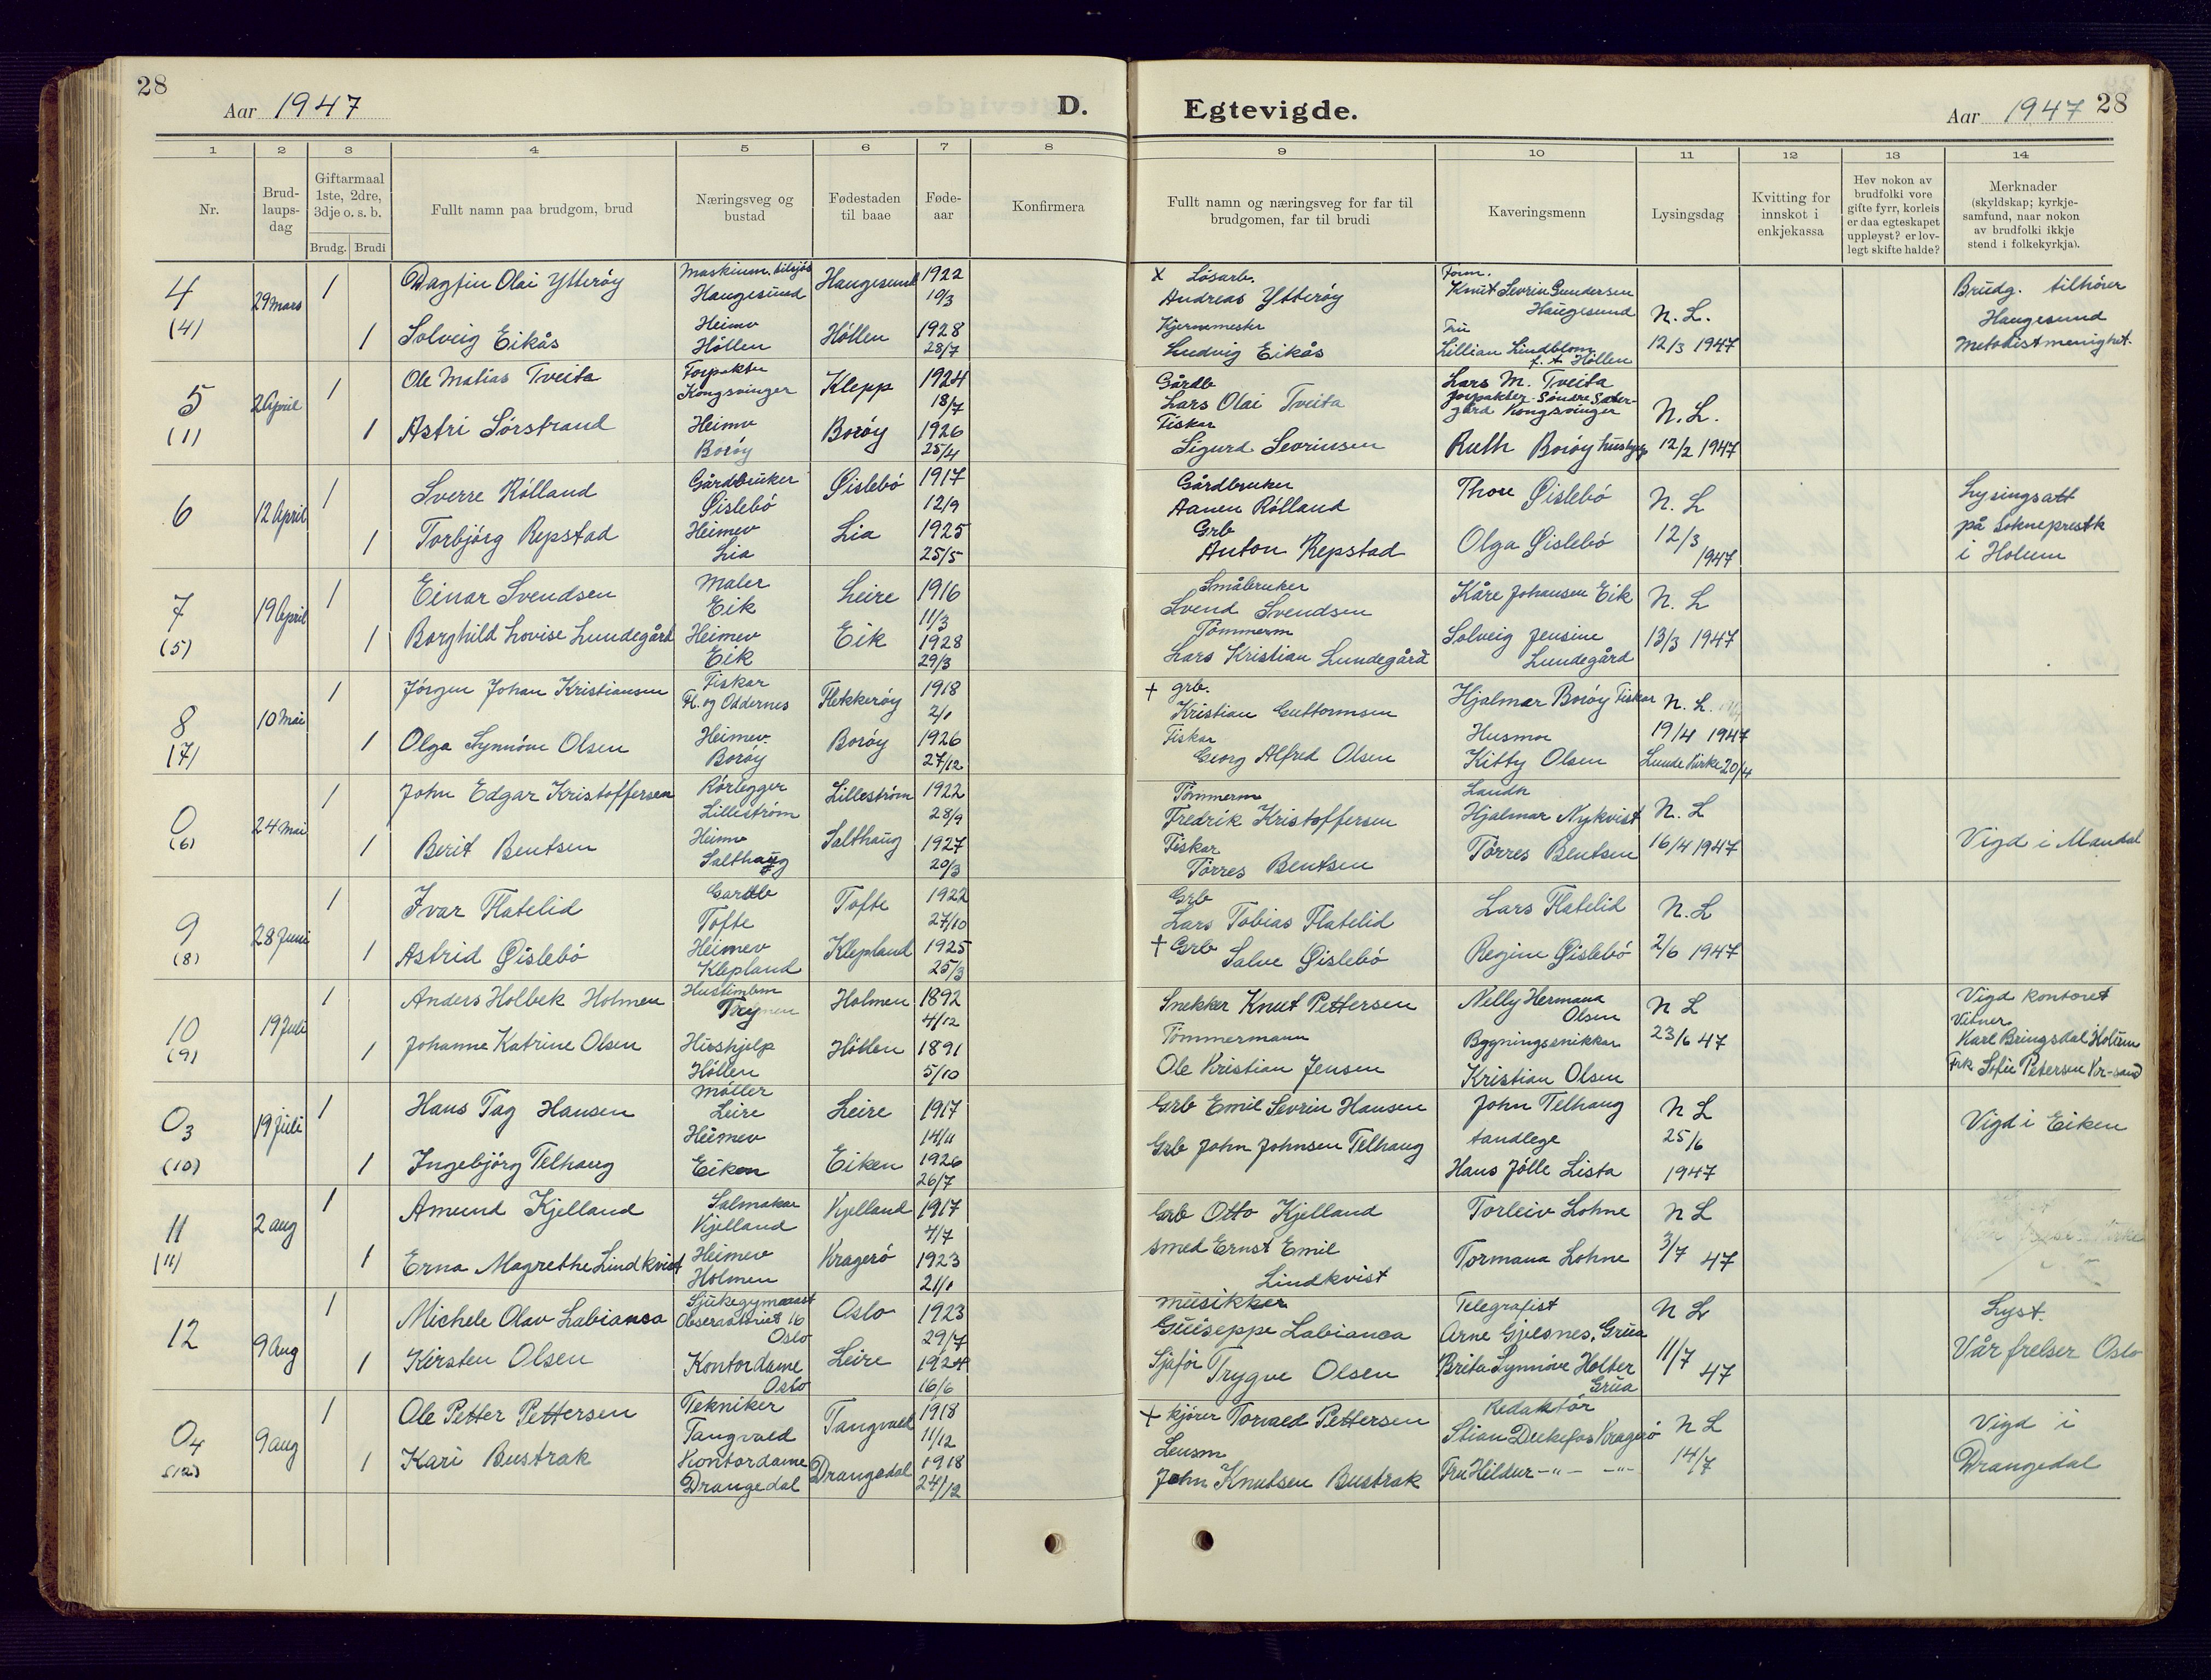 28
Aar 1947
D. Egtevigde.
Aar 1947 28
1 2 3 4 5 6 7 8 9 10 11 12 13 14
Nr.
Brud-
laups-
dag
Giftarmaal
1ste, 2dre,
3dje o. s. b.
Brudg. Brudi
Fullt namn paa brudgom, brud
Næringsveg og
bustad
Fødestaden
til baae
Føde-
aar
Konfirmera
Fullt namn og næringsveg for far til
brudgomen, far til brudi
Kaveringsmenn
Lysingsdag
Kvitting for
innskot i
enkjekassa
Hev nokon av
brudfolki vore
gifte fyrr, korleis
er daa egteskapet
uppløyst? er lov-
legt skifte halde?
Merknader
(skyldskap; kyrkje-
samfund, naar nokon
av brudfolki ikkje
stend i folkekyrkja).
4
(4)
29 mars
1
Dagfin Olai Ytterøy
Haugesund
Haugesund
1922
10/3
X Løsarb.
Andreas Ytterøy
Knut Sevrin Gundersen
Haugesund
N. L.
12/3 1947
Brudg. tilhører
Haugesund
Metodistmenighet.
1
Solveig Eikås
Heimev
Höllen
Höllen
1928
28/7
Ludvig Eikås
Fru
Lillian Lindblom
Höllen
5
(1)
2 April
1
Ole Matias Tveita
Forpakter
Kongsvinger
Klepp
1924
18/7
Gårdb
Lars Olai Tveita
Lars M. Tveita
forpakter Söndre Sæter-
gård Kongsvinger
N. L.
12/2 1947
1
Astri Sørstrand
Heimev
Borøy
Borøy
1926
25/4
Fiskar
Sigurd Sevrinsen
Ruth Borøy
6
12 April
1
Sverre Rólland
Gårdbruker
Øislebö
Øislebö
1917
12/9
Gårdbruker
Aanen Rólland
Thore Øislebö
N. L
12/3
1947
Lysingsatt
på Sokneprestk
i Holum
1
Torbjörg Repstad
Heimev
Lia
Lia
1925
25/5
Grb
Anton Repstad
Olga Øislebö
7
(5)
19 April
1
Einar Svendsen
Maler
Eik
Leire
1916
11/3
Småbruker
Svend Svendsen
Kåre Johansen Eik
N. L
13/3 1947
1
Borghild Lovise Lundegård
Heimev
Eik
Eik
1928
29/3
Tömmerm
Lars Kristian Lundegård
Solveig Jensine
Lundegård
8
(7)
10 Mai
1
Jörgen Johan Kristiansen
Fiskar
Fl. og Oddernes
Flekkerøy
1918
2/1
+ grb.
Kristian Guttormsen
Hjalmar Borøy Fiskar
N. L.
19/4 1947
Lunde Kirke 20/4
1
Olga Synnöve Olsen
Heimev.
Borøy
Borøy
1926
27/12
Fiskar
Georg Alfred Olsen
Husmor
Kitty Olsen
0
(6)
24 Mai
1
John Edgar Kristoffersen
Rörlegger
Lilleström
Lilleström
1922
28/9
Tömmerm
Fredrik Kristoffersen
Hjalmar Nykvist
N. L
16/4 1947
Vigd i Mandal
1
Berit Bentsen
Heimev
Salthaug
Salthaug
1927
20/3
Fiskar
Törres Bentsen
Törres Bentsen
9
(8)
28 Juni
1
Ivar Flatelid
Gardb
Tofte
Tofte
1922
27/10
Grb
Lars Tobias Flatelid
Lars Flatelid
N. L
2/6 1947
1
Astrid Øislebö
Heimev
Klepland
Klepland
1925
25/3
+ Grb
Salve Øislebö
Regine Øislebö
10
(9)
19 Juli
1
Anders Holbek Holmen
Hustimbm
Holmen
1892
4/12
Snekker Knut Pettersen
Nelly Hermana
Olsen
N L
23/6 47
Vigd kontoret
Vitner
Karl Bringsdal Holum
Frk Sofie Petersen Kr-sand
1
Johanne Katrine Olsen
Hushjelp
Höllen
Höllen
1891
5/10
Tömmermann
Ole Kristian Jensen
Bygningssnikkar
Kristian Olsen
03
(10)
19 Juli
1
Hans Tag Hansen
Möller
Leire
Leire
1917
14/11
Grb Emil Sevrin Hansen
John Telhaug
tandlege
N L
25/6
1947
Vigd i Eiken
1
Ingebjörg Telhaug
Heimev
Eiken
Eiken
1926
26/7
Grb John Johnsen Telhaug
Hans Jölle Lista
11
(11)
2 aug
1
Amund Kjelland
Salmakar
Kjelland
Kjelland
1917
4/7
Grb Otto Kjelland
Torleiv Lohne
N L
3/7 47
1
Erna Magrethe Lindkvist
Heimev
Holmen
Kragerö
1923
21/1
Smed Ernst Emil
Lindkvist
Tormana Lohne
12
9 Aug
1
Michele Olav Labianca
Sjukegymnast
Oslo
Oslo
1923
29/7
Musikker
Guiseppe Labianca
Telegrafist
Arne Gjelsnes, Grua
N L
11/7 47
Lyst.
Vår frelser Oslo
1
Kirsten Olsen
Kontordame
Oslo
Leire
1924
16/6
Sjafør
Trygve Olsen
Brita Synnöve Holter
Grua
04
(12)
9 aug
1
Ole Petter Pettersen
Tekniker
Tangvald
Tangvald
1918
11/12
+ kjörer Torvald Pettersen
Redaktör
Kragerö
N L
14/7
Vigd i
Drangedal
1
Kari Bustrak
Kontordame
Drangedal
Drangedal
1918
24/12
Lensm
John Knutsen Bustrak
Fru Hildur -"- -"-